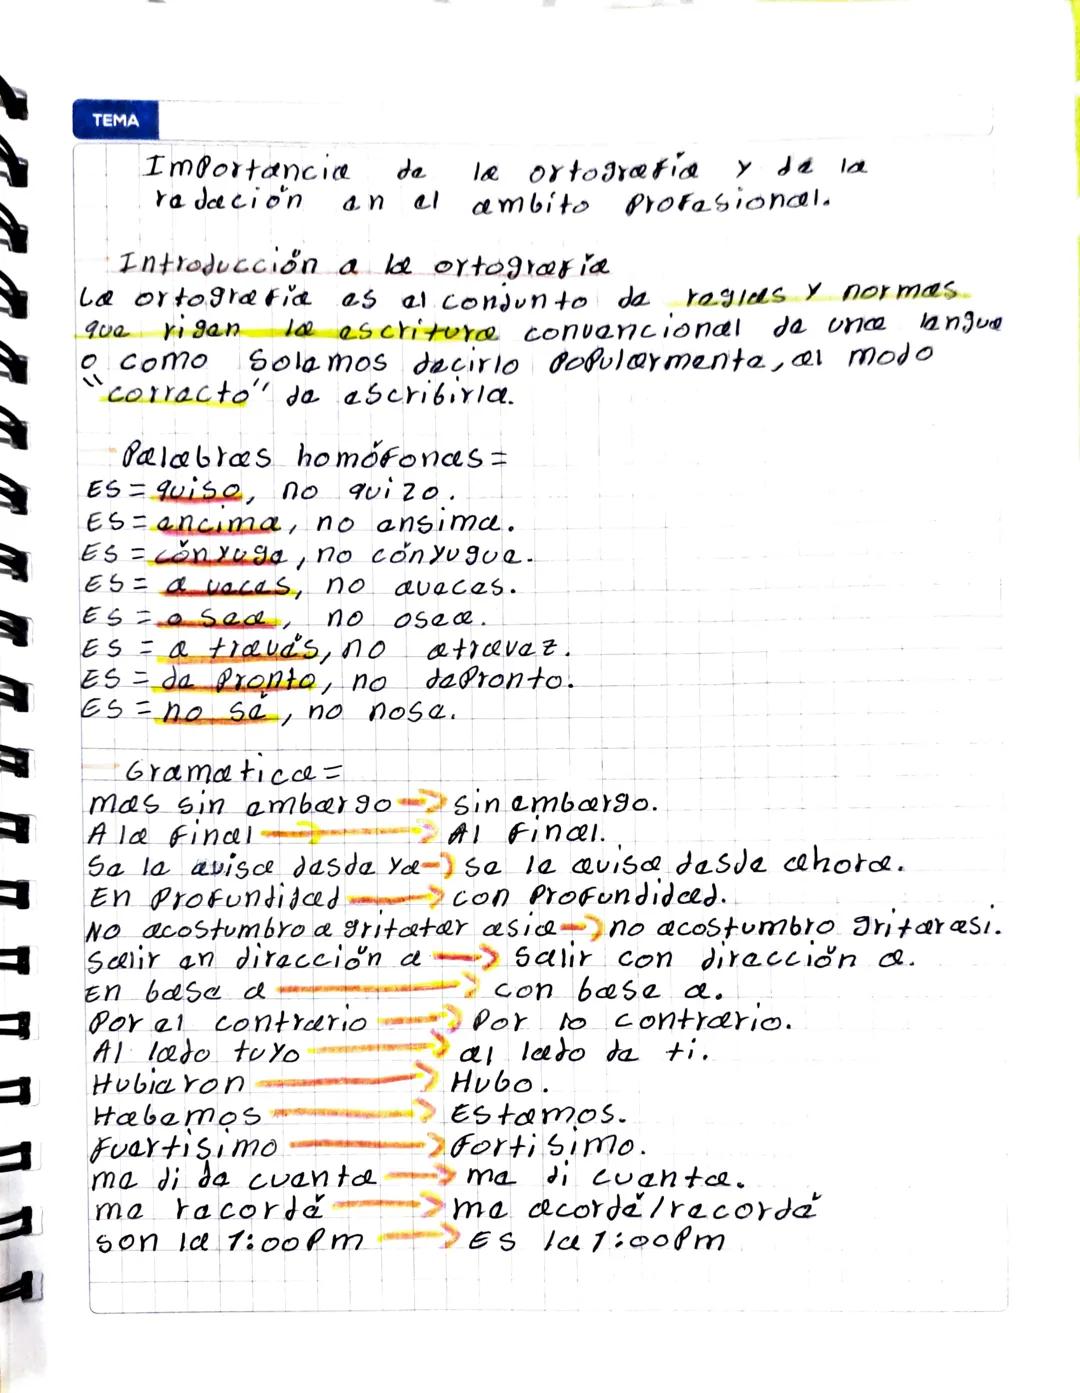 TEMA
Importancia de la ortografía y de la
redación en el ambito Profesional.
Introducción a la ortografía
La ortografía es el conjunto de reglas y normas
que rigen la escritura convencional de una lengua
o como Solemos decirlo Popularmente, el modo
"correcto" de escribirla.
Palabras homófonas=
ES= quiso, no quizo.
ES= encima, no ensima.
ES= cónyuge, no cónyugue.
ES= a veces, no aveces.
ES= o sea, no osea.
ES= a través, no atravez.
ES= de Pronto, no dePronto.
ES= no sé, no nose.
Gramatica=
mas sin embargo → sin embargo.
A la final → Al final.
Se le avisa desde ya → se le avisa desde ahora.
En Profundidad → con Profundidad.
No acostumbro a gritatar asia → no acostumbro gritar asi.
Salir en dirección a → Salir con dirección a.
En base a → con base a.
Por el contrario → Por lo contrario.
Al lado tuyo → al lado de ti.
Hubieron → Hubo.
Habemos → Estamos.
Fuertisimo → Fortisimo.
me di de cuenta → me di cuenta.
me recordé → me acordé/recordé
son la 1:00Pm → ES la 1:00Pm